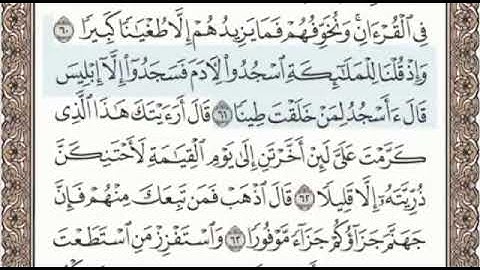 فِي الْقُرْءَانِ ۚ وَنُخَوِّفُهُمْ فَمَا يَزِيدُهُمْ إِلَّا طُغْيَٰنًا كَبِيرًا ٦٠
وَإِذْ قُلْنَا لِلْمَلَٰٓئِكَةِ اسْجُدُوا۟ لِءَادَمَ فَسَجَدُوٓا۟ إِلَّآ إِبْلِيسَ
قَالَ ءَأَسْجُدُ لِمَنْ خَلَقْتَ طِينًا ٦١ قَالَ أَرَءَيْتَكَ هَٰذَا الَّذِى
كَرَّمْتَ عَلَىَّ لَئِنْ أَخَّرْتَنِ إِلَىٰ يَوْمِ الْقِيَٰمَةِ لَأَحْتَنِكَنَّ
ذُرِّيَّتَهُۥٓ إِلَّا قَلِيلًا ٦٢ قَالَ اذْهَبْ فَمَن تَبِعَكَ مِنْهُمْ فَإِنَّ
جَهَنَّمَ جَزَآؤُكُمْ جَزَآءً مَّوْفُورًا ٦٣ وَاسْتَفْزِزْ مَنِ اسْتَطَعْتَ